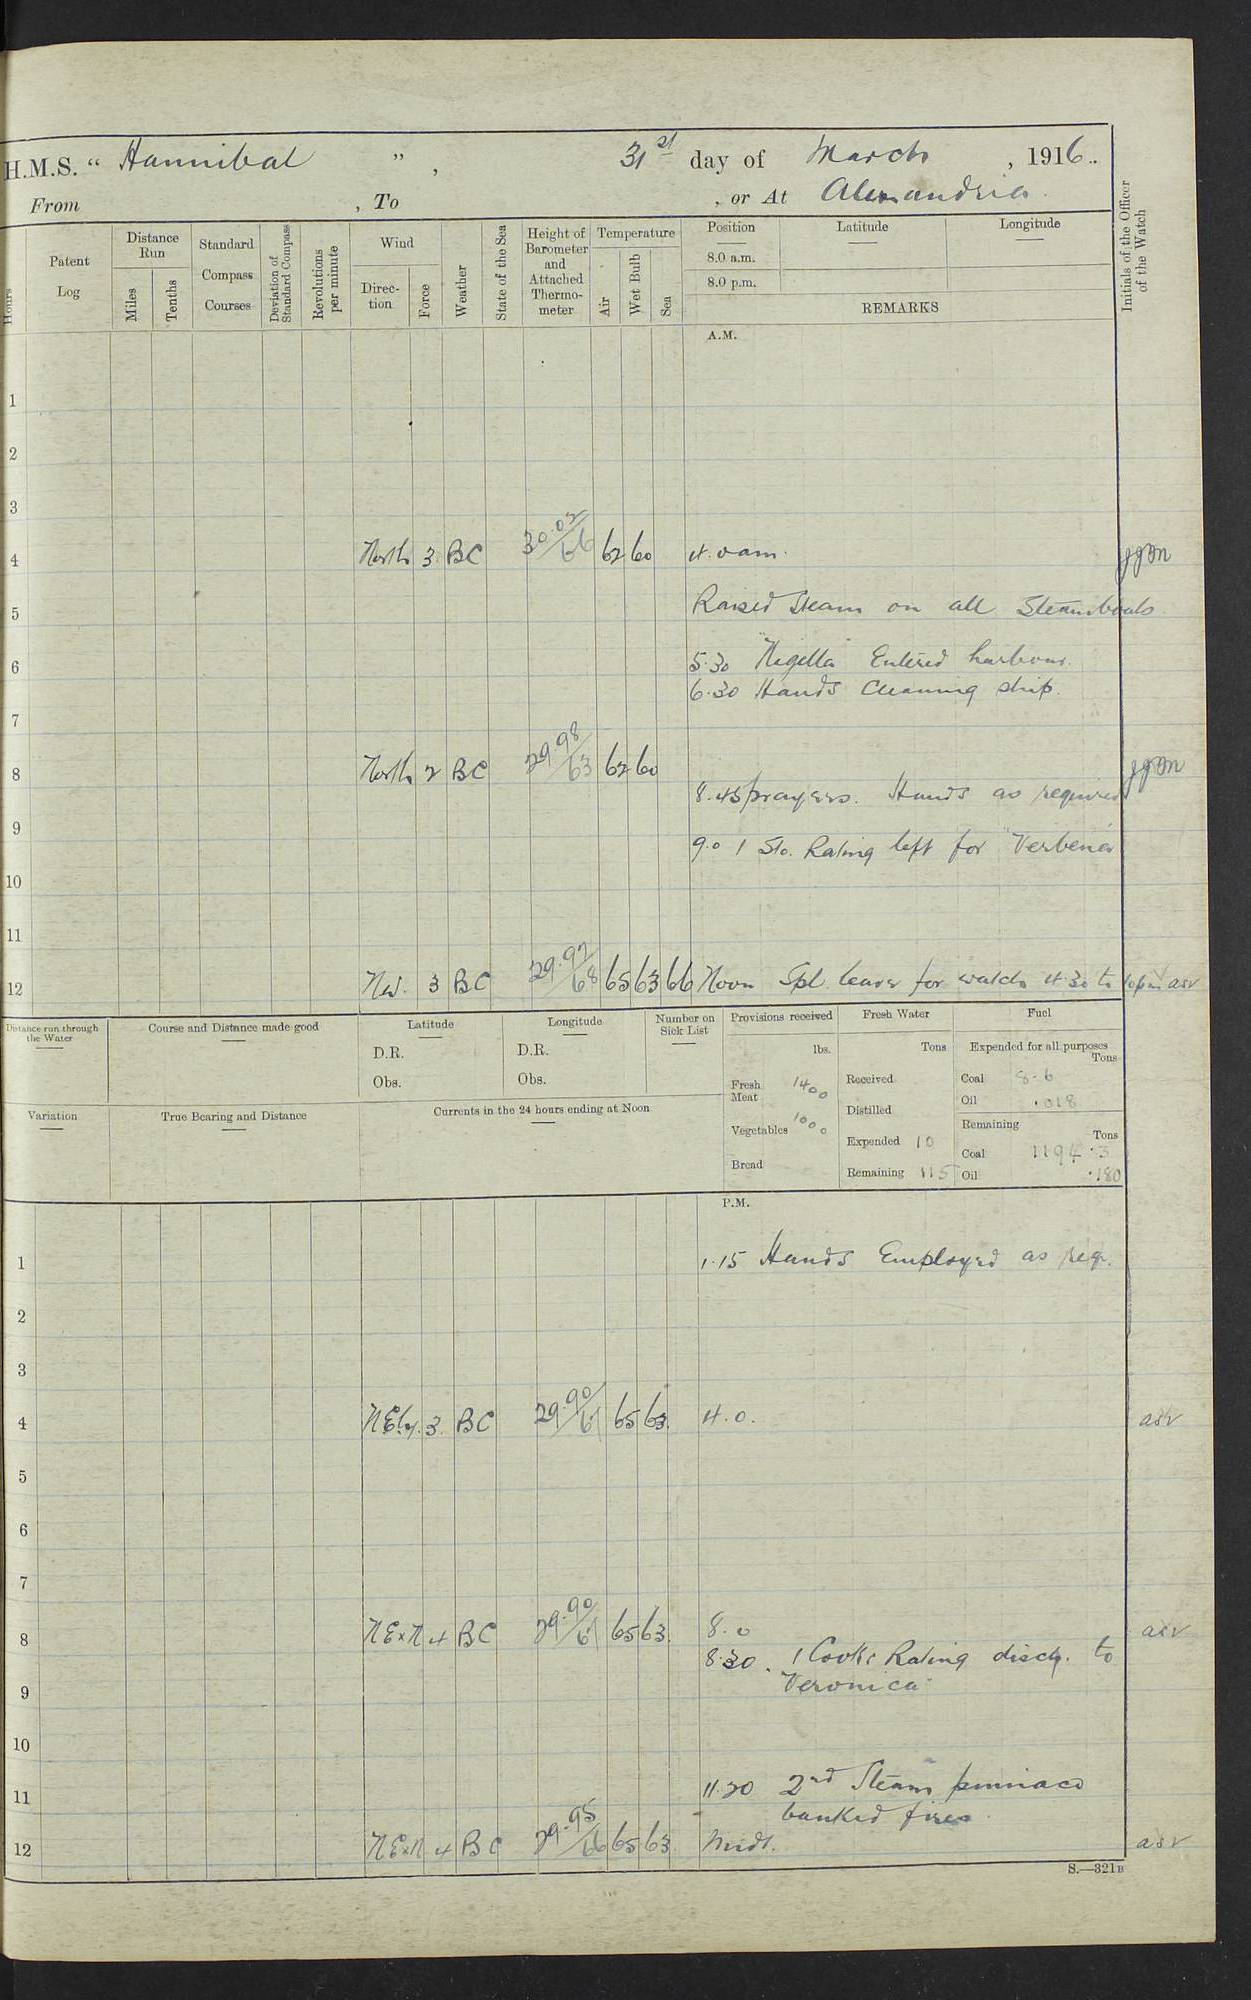 H.M.S. “ Hannibal ” , 31st day of March , 1916..
From , To , or At Alexandria.
Hours
Patent Log
Distance Run
Miles
Tenths
Standard Compass Courses
Deviation of Standard Compass
Revolutions per minute
Wind
Direc-tion
Force
Weather
State of the Sea
Height of Barometer and Attached Thermo-meter
Temperature
Air
Wet Bulb
Sea
Position
8.0 a.m.
8.0 p.m.
Latitude
Longitude
REMARKS
Initials of the Officer of the Watch
A.M.
1
2
3
4 North 3 BC 30.02/66 62 60 4.0 am.
5 Raised Steam on all Steamboats
6 5.30 "Nigella" Entered harbour.
6.30 Hands Cleaning ship.
7
8 North 2 BC 29.98/63 62 60
8.45 prayers. Hands as required
9 9.0 1 Sto. Rating left for "Verbena"
10
11
12 NW. 3 BC 29.97/68 65 63 66 Noon Spl. leave for watch 4.30 to 10pm asv
Distance run through the Water
Course and Distance made good
Latitude
D.R.
Obs.
Longitude
D.R.
Obs.
Number on Sick List
Provisions received
lbs.
Fresh Meat 1400
Vegetables 1000
Bread
Fresh Water
Tons
Received
Distilled
Expended 10
Remaining 115
Fuel
Expended for all purposes
Tons
Coal 8.6
Oil .018
Remaining
Tons
Coal 1194.3
Oil .180
Variation
True Bearing and Distance
Currents in the 24 hours ending at Noon
P.M.
1 1.15 Hands Employed as req.
2
3
4 NEly. 3 BC 29.90/61 65 63. 4.0. asv
5
6
7
8 NExN 4 BC 29.90/61 65 63. 8.0 asv
8.30. 1 Cooks Rating disch. to
9 "Veronica"
10
11 11.20 2nd Steam pinnace
banked fires.
12 NExN 4 BC 29.95/66 65 63 Midt. asv
S.—321B